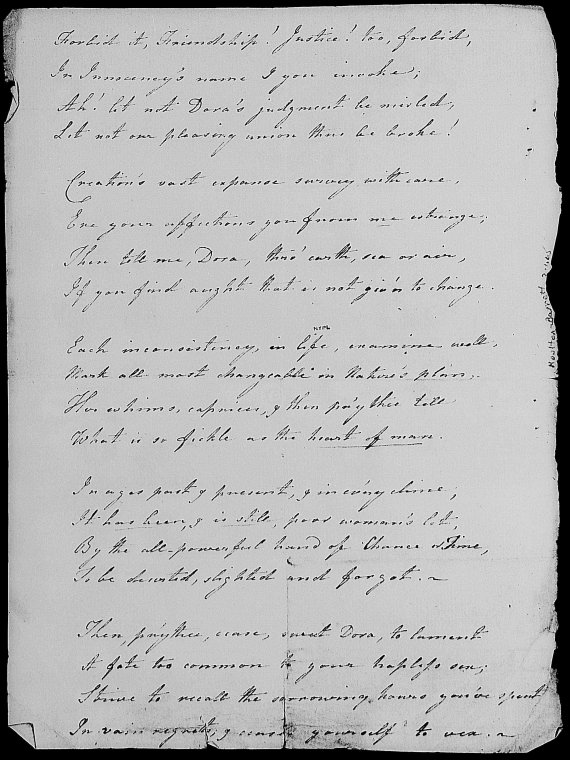 Forbid it, Friendship! Justice! too, forbid,
In Innocency's name I you invoke;
Ah! let not Dora's judgment be misled,
Let not our pleasing union thus be broke!
Creation's vast expanse survey with care,
Ere your affections you from me estrange;
Then tell me, Dora, thro' earth, sea or air,
If you find aught that is not giv'n to change.
Each inconsistency, in life, examine well,
Mark all most changeable in Nature's plan,
Her whims, caprices, & then pr'ythee tell
What is so fickle as the heart of man.
In ages past & present, & in ev'ry clime,
It has been, & is still, poor woman's lot,
By the all-powerful hand of Chance or Time,
To be deserted, slighted and forgot. ~
Then, pr'ythee, cease, sweet Dora, to lament
A fate too common to your hapless sex;
Strive to recall the sorrowing hours you've spent
In vain regrets, & cease yourself to vex. ~
Moulton-Barrett